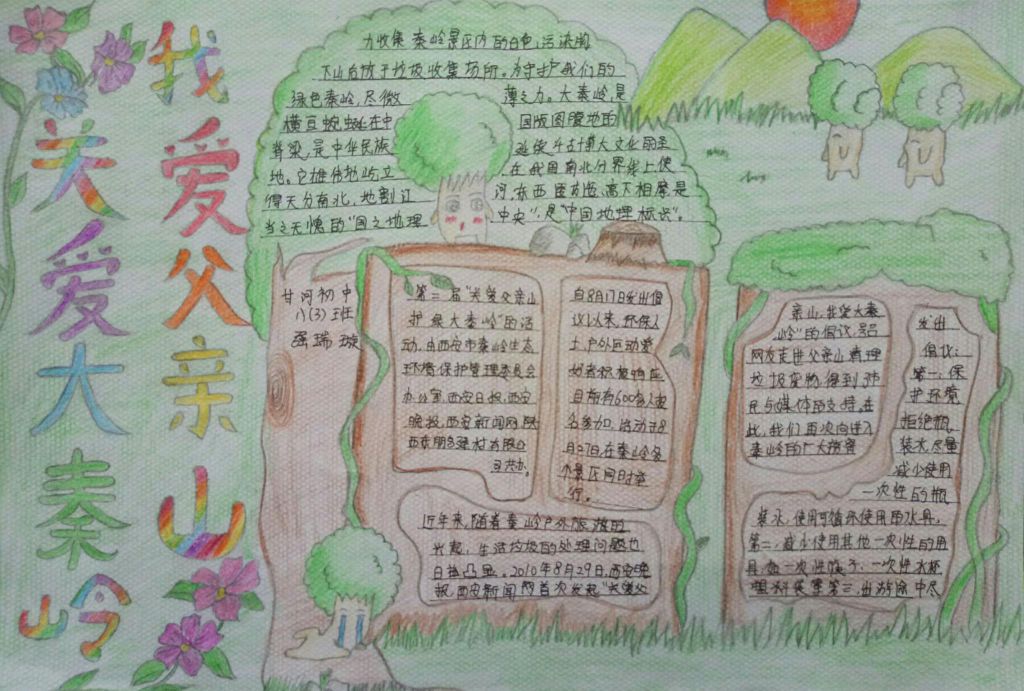 我爱父亲山
关爱大秦岭
力收集秦岭景区内的白色污染物
下山后放于垃圾收集场所。为守护我们的
绿色秦岭,尽微薄之力。大秦岭,是
横亘蜿蜒在中国版图腹地的
脊梁,是中华民族
地。它雄伟地屹立在我国南北分界线上,使
得天分南北,地割江河,东西
当之无愧的"国之地理中央",是"中国地理标识"。
甘河初中
八(3)班
强瑞璇
第二届"关爱父亲山
大秦岭"的活
动,由西安市秦岭生态
环境保护管理委员会
办公室,西安日报,西安
晚报,西安新闻网,陕
西
司共办。
自8月17日发出倡
议以来,环保人
士,户外运动爱
好者积极响应
目前有600名人报
名参加,活动于8
月27日在秦岭各
个景区同时举
行。
近年来,随着秦岭户外旅游的
兴起,生活垃圾的处理问题也
日益凸显。2010年8月29日,西安晚
报,西安新闻网首次发起"关爱父
亲山,我爱大秦
岭"的倡议,号召
网友走进父亲山清理
垃圾废物,得到市
民与媒体的支持,在
此,我们再次向进入
秦岭的广大旅客
发出
倡议:
第一:保
护环境
拒绝瓶
装水,尽量
减少使用
一次性的瓶
装水,使用可循环使用的水具,
第二,减少使用其他一次性的用
具,如一次性筷子,一次性水杯
第三,出游途中尽